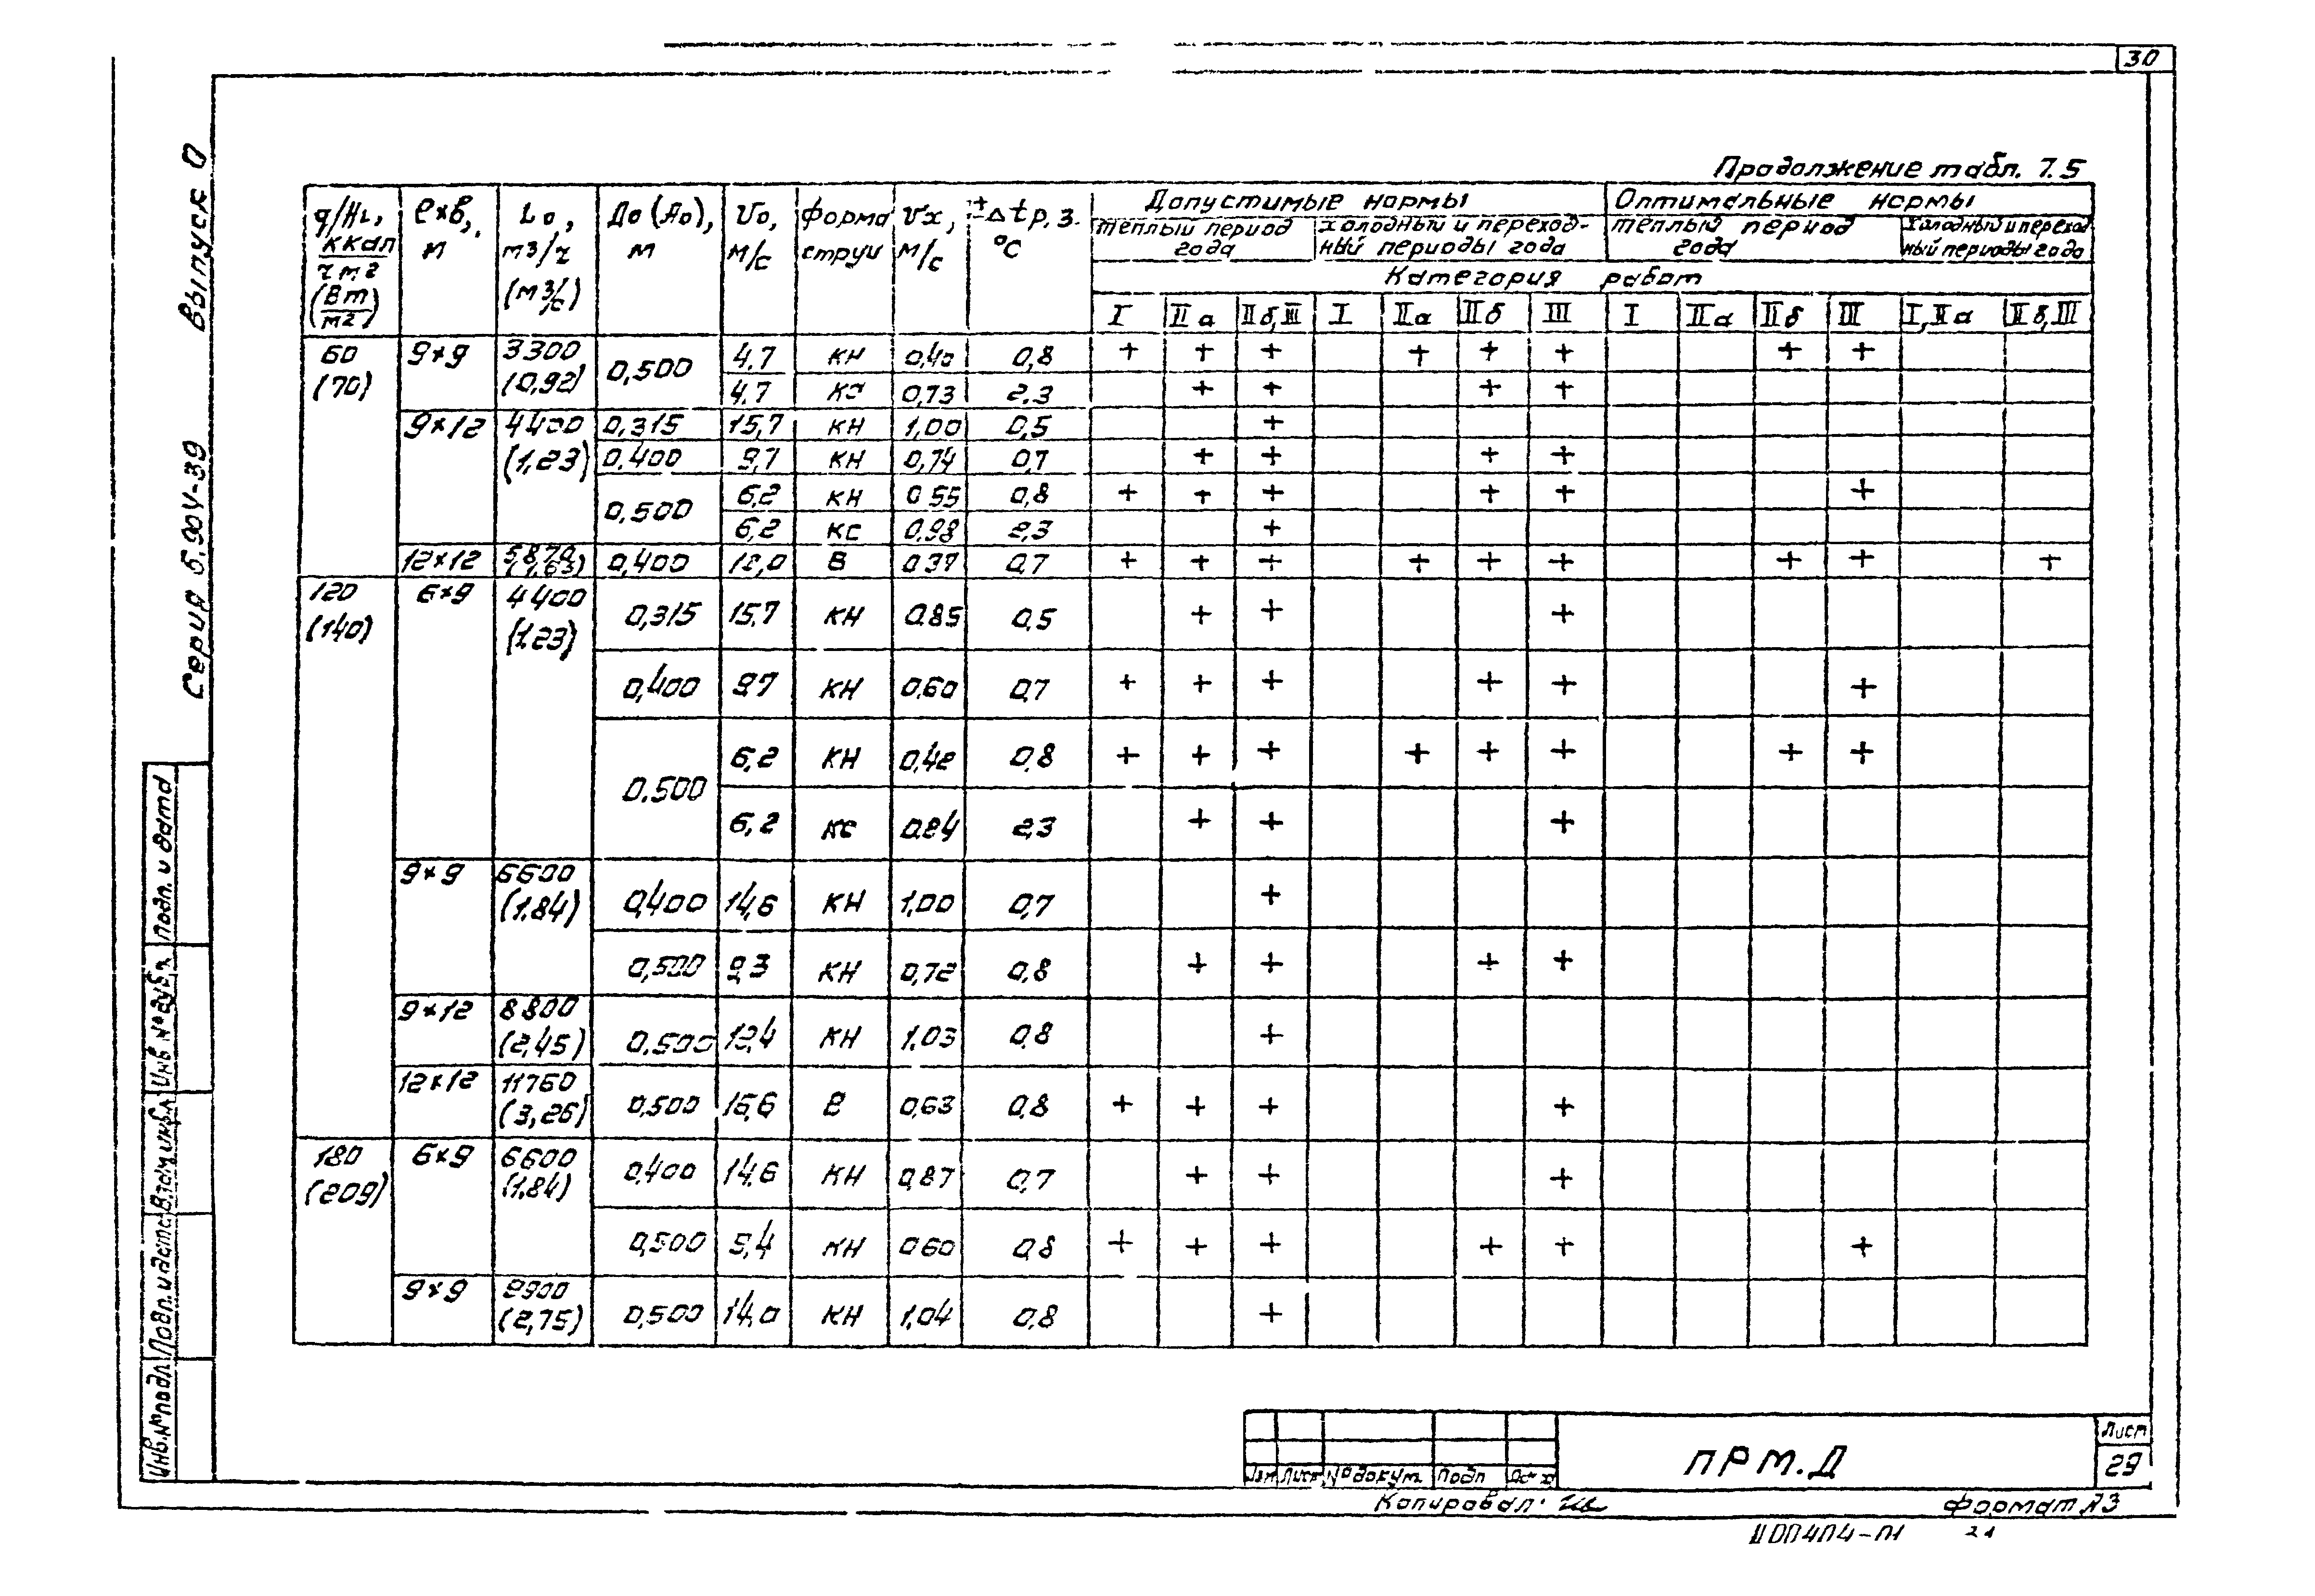 30
Продолжение табл. 7.5
Серия 5.904-39 Выпуск 0
q/HL, ккал/ч м2 (Вт/м2) | ℓхв, м | Lо, м3/ч (м3/с) | До (Ао), м | Vо, м/с | форма струи | Vх, м/с | ±Δtр.з. °С | Допустимые нормы | Оптимальные нормы
теплый период года | холодный и переходный периоды года | теплый период года | холодный и переходный периоды года
Категория работ
I | IIа | IIб,III | I | IIа | IIб | III | I | IIа | IIб | III | I,IIа | IIб,III
60 (70) | 9×9 | 3300 (0,92) | 0,500 | 4,7 | КН | 0,40 | 0,8 | + | + | + | | + | + | + | | | + | + | |
4,7 | КС | 0,73 | 2,3 | | + | + | | | + | + | | | | | |
9×12 | 4400 (1,23) | 0,315 | 15,7 | КН | 1,00 | 0,5 | | | + | | | | | | | | | |
0,400 | 9,7 | КН | 0,74 | 0,7 | | + | + | | | + | + | | | | | |
0,500 | 6,2 | КН | 0,55 | 0,8 | + | + | + | | | + | + | | | | + | |
6,2 | КС | 0,98 | 2,3 | | | + | | | | | | | | | |
12×12 | 5870 (1,63) | 0,400 | 13,0 | В | 0,37 | 0,7 | + | + | + | | + | + | + | | | + | + | | +
120 (140) | 6×9 | 4400 (1,23) | 0,315 | 15,7 | КН | 0,85 | 0,5 | | + | + | | | | + | | | | | |
0,400 | 9,7 | КН | 0,60 | 0,7 | + | + | + | | | + | + | | | | + | |
0,500 | 6,2 | КН | 0,42 | 0,8 | + | + | + | | + | + | + | | | + | + | |
6,2 | КС | 0,84 | 2,3 | | + | + | | | | + | | | | | |
9×9 | 6600 (1,84) | 0,400 | 14,6 | КН | 1,00 | 0,7 | | | + | | | | | | | | | |
0,500 | 9,3 | КН | 0,72 | 0,8 | | + | + | | | + | + | | | | | |
9×12 | 8800 (2,45) | 0,500 | 12,4 | КН | 1,03 | 0,8 | | | + | | | | | | | | | |
12×12 | 11760 (3,26) | 0,500 | 16,6 | В | 0,63 | 0,8 | + | + | + | | | | + | | | | | |
180 (209) | 6×9 | 6600 (1,84) | 0,400 | 14,6 | КН | 0,87 | 0,7 | | + | + | | | | + | | | | | |
0,500 | 9,4 | КН | 0,60 | 0,8 | + | + | + | | | + | + | | | | + | |
9×9 | 9900 (2,75) | 0,500 | 14,0 | КН | 1,04 | 0,8 | | | + | | | | | | | | | |
Инв.№подл. Подп. и дата Взам инв.№ Инв №дубл. Подп. и дата
Изм Лист №докум. Подп Дата
ПРМ.Д
Лист
29
Копировал:
Формат А3